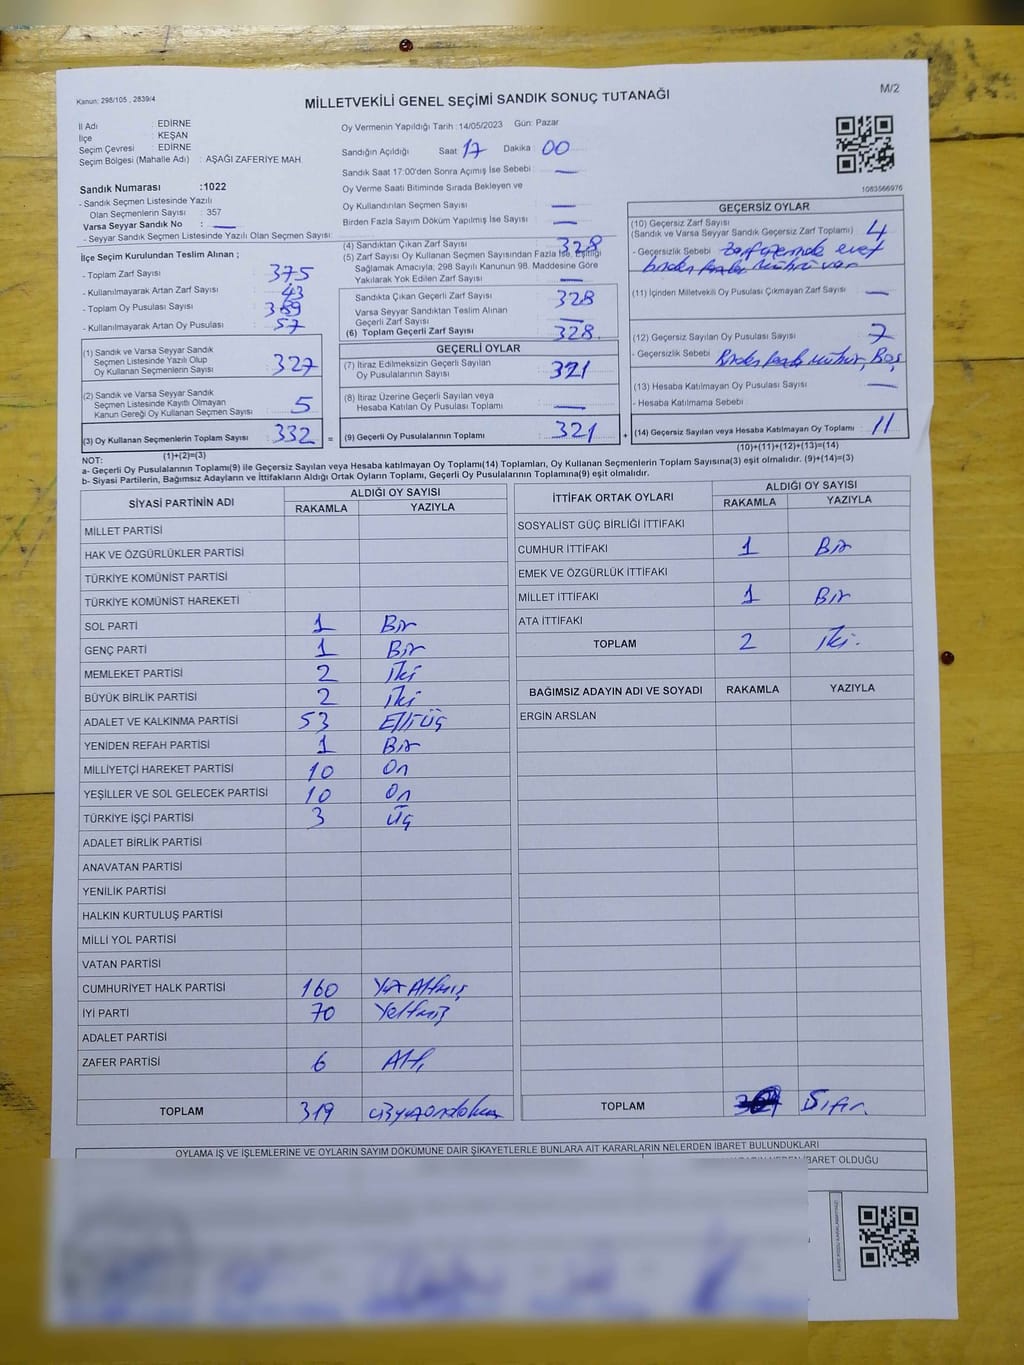 Kanun: 298/105 , 2839/4
MİLLETVEKİLİ GENEL SEÇİMİ SANDIK SONUÇ TUTANAĞI
M/2
İl Adı : EDİRNE
İlçe : KEŞAN
Seçim Çevresi : EDİRNE
Seçim Bölgesi (Mahalle Adı) : AŞAĞI ZAFERİYE MAH.
Sandık Numarası :1022
- Sandık Seçmen Listesinde Yazılı
Olan Seçmenlerin Sayısı : 357
Varsa Seyyar Sandık No : —
- Seyyar Sandık Seçmen Listesinde Yazılı Olan Seçmen Sayısı:
İlçe Seçim Kurulundan Teslim Alınan ;
- Toplam Zarf Sayısı : 375
- Kullanılmayarak Artan Zarf Sayısı : 43
- Toplam Oy Pusulası Sayısı : 389
- Kullanılmayarak Artan Oy Pusulası : 57
(1) Sandık ve Varsa Seyyar Sandık
Seçmen Listesinde Yazılı Olup
Oy Kullanan Seçmenlerin Sayısı : 327
(2) Sandık ve Varsa Seyyar Sandık
Seçmen Listesinde Kayıtlı Olmayan
Kanun Gereği Oy Kullanan Seçmen Sayısı : 5
(3) Oy Kullanan Seçmenlerin Toplam Sayısı : 332 =
(1)+(2)=(3)
Oy Vermenin Yapıldığı Tarih : 14/05/2023 Gün: Pazar
Sandığın Açıldığı Saat : 17 Dakika : 00
Sandık Saat 17:00'den Sonra Açımış İse Sebebi : —
Oy Verme Saati Bitiminde Sırada Bekleyen ve
Oy Kullandırılan Seçmen Sayısı : —
Birden Fazla Sayım Döküm Yapılmış İse Sayısı : —
(4) Sandıktan Çıkan Zarf Sayısı : 328
(5) Zarf Sayısı Oy Kullanan Seçmen Sayısından Fazla İse, Eşitliği
Sağlamak Amacıyla, 298 Sayılı Kanunun 98. Maddesine Göre
Yakılarak Yok Edilen Zarf Sayısı : —
Sandıkta Çıkan Geçerli Zarf Sayısı : 328
Varsa Seyyar Sandıktan Teslim Alınan
Geçerli Zarf Sayısı : —
(6) Toplam Geçerli Zarf Sayısı : 328
GEÇERLİ OYLAR
(7) İtiraz Edilmeksizin Geçerli Sayılan
Oy Pusulalarının Sayısı : 321
(8) İtiraz Üzerine Geçerli Sayılan veya
Hesaba Katılan Oy Pusulası Toplamı : —
(9) Geçerli Oy Pusulalarının Toplamı : 321 +
1083566976
GEÇERSİZ OYLAR
(10) Geçersiz Zarf Sayısı
(Sandık ve Varsa Seyyar Sandık Geçersiz Zarf Toplamı) : 4
- Geçersizlik Sebebi : Zarf üzerinde evet
birden fazla mührü var
(11) İçinden Milletvekili Oy Pusulası Çıkmayan Zarf Sayısı : —
(12) Geçersiz Sayılan Oy Pusulası Sayısı : 7
- Geçersizlik Sebebi : Birden fazla mühür, Boş
(13) Hesaba Katılmayan Oy Pusulası Sayısı : —
- Hesaba Katılmama Sebebi :
(14) Geçersiz Sayılan veya Hesaba Katılmayan Oy Toplamı : 11
(10)+(11)+(12)+(13)=(14)
NOT:
a- Geçerli Oy Pusulalarının Toplamı(9) ile Geçersiz Sayılan veya Hesaba katılmayan Oy Toplamı(14) Toplamları, Oy Kullanan Seçmenlerin Toplam Sayısına(3) eşit olmalıdır. (9)+(14)=(3)
b- Siyasi Partilerin, Bağımsız Adayların ve İttifakların Aldığı Ortak Oyların Toplamı, Geçerli Oy Pusulalarının Toplamına(9) eşit olmalıdır.
SİYASİ PARTİNİN ADI ALDIĞI OY SAYISI
RAKAMLA YAZIYLA
MİLLET PARTİSİ
HAK VE ÖZGÜRLÜKLER PARTİSİ
TÜRKİYE KOMÜNİST PARTİSİ
TÜRKİYE KOMÜNİST HAREKETİ
SOL PARTİ 1 Bir
GENÇ PARTİ 1 Bir
MEMLEKET PARTİSİ 2 İki
BÜYÜK BİRLİK PARTİSİ 2 İki
ADALET VE KALKINMA PARTİSİ 53 Elli üç
YENİDEN REFAH PARTİSİ 1 Bir
MİLLİYETÇİ HAREKET PARTİSİ 10 On
YEŞİLLER VE SOL GELECEK PARTİSİ 10 On
TÜRKİYE İŞÇİ PARTİSİ 3 Üç
ADALET BİRLİK PARTİSİ
ANAVATAN PARTİSİ
YENİLİK PARTİSİ
HALKIN KURTULUŞ PARTİSİ
MİLLİ YOL PARTİSİ
VATAN PARTİSİ
CUMHURİYET HALK PARTİSİ 160 Yüz Altmış
İYİ PARTİ 70 Yetmiş
ADALET PARTİSİ
ZAFER PARTİSİ 6 Altı
TOPLAM 319 Üçyüzondokuz
İTTİFAK ORTAK OYLARI ALDIĞI OY SAYISI
RAKAMLA YAZIYLA
SOSYALİST GÜÇ BİRLİĞİ İTTİFAKI
CUMHUR İTTİFAKI 1 Bir
EMEK VE ÖZGÜRLÜK İTTİFAKI
MİLLET İTTİFAKI 1 Bir
ATA İTTİFAKI
TOPLAM 2 İki.
BAĞIMSIZ ADAYIN ADI VE SOYADI RAKAMLA YAZIYLA
ERGİN ARSLAN
TOPLAM Sıfır.
OYLAMA İŞ VE İŞLEMLERİNE VE OYLARIN SAYIM DÖKÜMÜNE DAİR ŞİKAYETLERLE BUNLARA AİT KARARLARIN NELERDEN İBARET BULUNDUKLARI
İBARET OLDUĞU